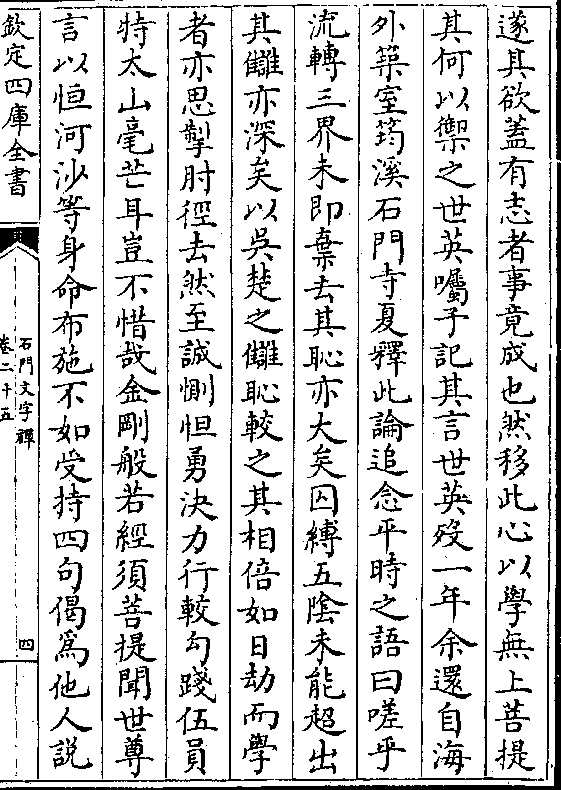 遂其欲蓋有志者事竟成也然移此心以學無上菩提
其何以禦之世英囑予記其言世英歿一年余還自海
外築室筠溪石門寺夏釋此論追念平時之語曰嗟乎
流轉三界未即棄去其恥亦大矣囚縛五陰未能超出
其讎亦深矣以吳楚之讎恥較之其相倍如日劫而學
者亦思掣肘徑去然至誠惻怛勇決力行較勾踐伍員
特太山毫芒耳豈不惜哉金剛般若經須菩提聞世尊
言以恒河沙等身命布施不如受持四句偈為他人說
欽定四庫全書
石門文字禪
卷二十五
四